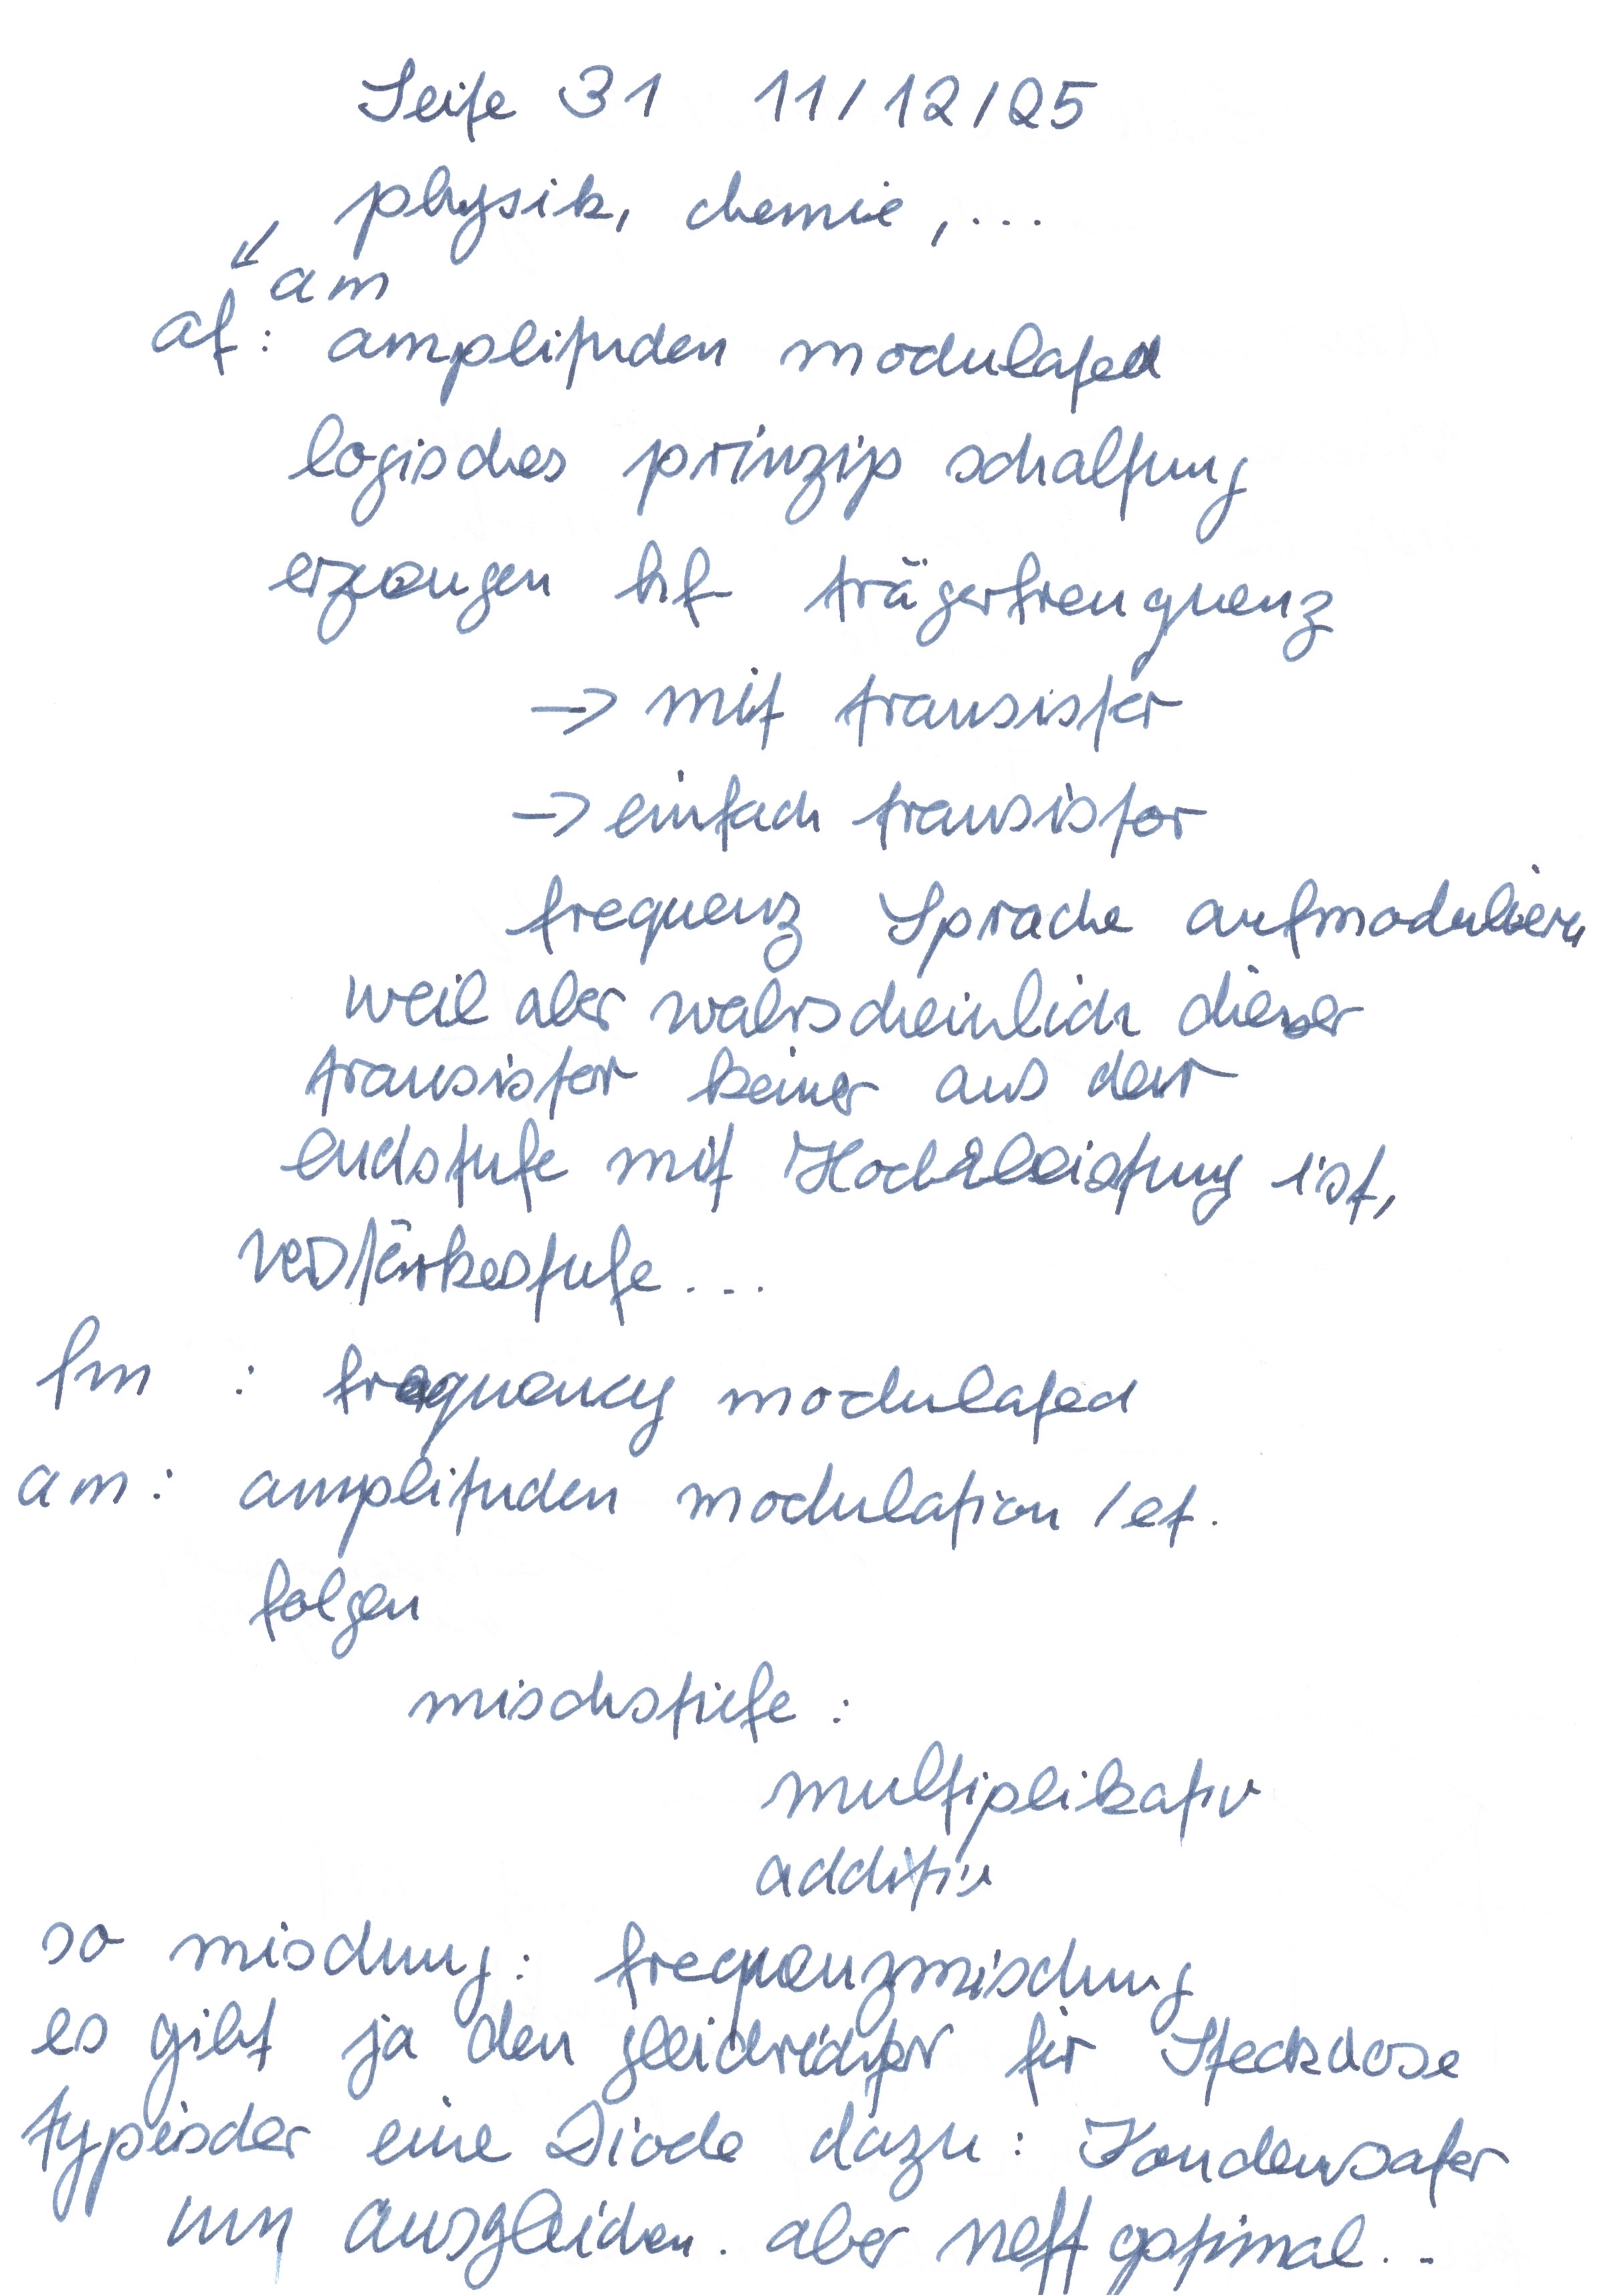 Seite 31 11/12/25
physik, chemie, ...
↙ am
af: amplituden modulated
logisches prinzip schaltung
erzeugen hf trägerfrenquenz
-> mit transistor
-> einfach transistor
frequenz Sprache aufmodulieren
weil aber wahrscheinlich dieser
transistor keiner aus der
endstufe mit Hochleistung ist,
verstärkestufe...
fm : frequency modulated
am: amplituden modulation /et.
folgen
mischstufe :
multiplikativ
additiv
so mischung: frequenzmischung
es gibt ja den gleichrichter für Steckdose
typischer eine Diode dazu: Kondensator
um ausgleichen. aber nett optimal...